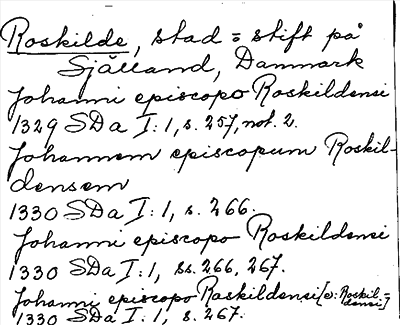 Roskilde, stad = stift på
Själland, Danmark
Johanni episcopo Roskildensi
1329 SDa I:1, s. 257, not. 2.
Johannem episcopum Roskil-
densem
1330 SDa I:1, s. 266.
Johanni episcopo Roskildensi
1330 SDa I:1, ss. 266, 267.
Johanni episcopo Raskildensi [ɔ: Roskil-
densi]
1330 SDa I:1, s. 267.